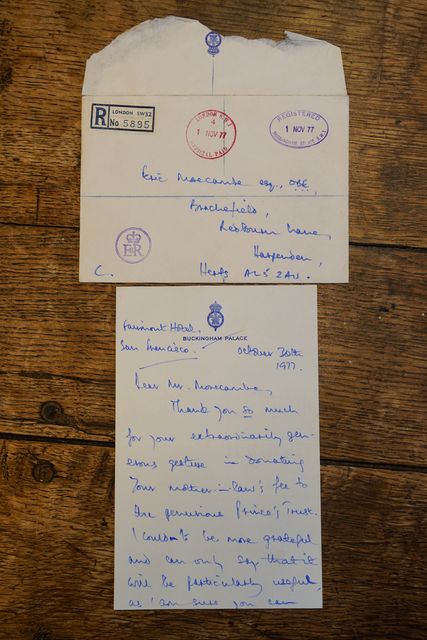 R
LONDON SW32
No 5895
LONDON S.W.1
4
1 NOV 77
OFFICIAL PAID
REGISTERED
1 NOV 77
Eric Morecambe esq., OBE,
Brachefield,
Redbourn Lane,
Harpenden,
Herts AL5 2AU.
EIIR
C.
Fairmont Hotel,
San Francisco.
BUCKINGHAM PALACE
October 30th
1977.
Dear Mr. Morecambe,
Thank you so much
for your extraordinarily gen-
erous gesture in donating
your mother-in-law's fee to
the penurious Prince's Trust.
I couldn't be more grateful
and can only say that it
will be particularly useful,
as I am sure you can